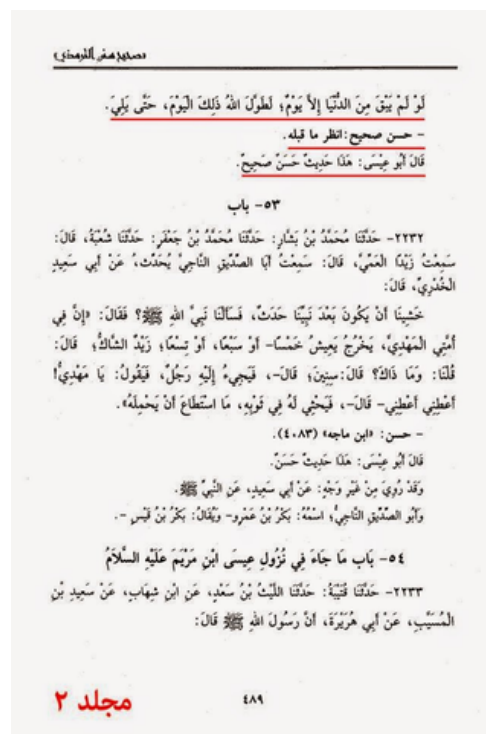 صحيح سنن الترمذي
لَوْ لَمْ يَبْقَ مِنَ الدُّنْيَا إِلاَّ يَوْمٌ؛ لَطَوَّلَ اللهُ ذَلِكَ الْيَوْمَ، حَتَّى يَلِيَ.
- حسن صحيح: انظر ما قبله.
قَالَ أَبُو عِيْسَى: هَذَا حَدِيثٌ حَسَنٌ صَحِيحٌ.
٥٣- باب
٢٢٣٢- حَدَّثَنَا مُحَمَّدُ بْنُ بَشَّارٍ: حَدَّثَنَا مُحَمَّدُ بْنُ جَعْفَرٍ: حَدَّثَنَا شُعْبَةُ، قَالَ:
سَمِعْتُ زَيْدًا الْعَمِّيَّ، قَالَ: سَمِعْتُ أَبَا الصِّدِّيقِ النَّاجِيَّ يُحَدِّثُ، عَنْ أَبِي سَعِيدٍ
الْخُدْرِيِّ، قَالَ:
خَشِينَا أَنْ يَكُونَ بَعْدَ نَبِيِّنَا حَدَثٌ، فَسَأَلْنَا نَبِيَّ اللهِ ﷺ؟ فَقَالَ: «إِنَّ فِي
أُمَّتِي الْمَهْدِيَّ، يَخْرُجُ يَعِيشُ خَمْسًا- أَوْ سَبْعًا، أَوْ تِسْعًا؛ زَيْدٌ الشَّاكُّ؛ قَالَ:
قُلْنَا: وَمَا ذَاكَ؟ قَالَ: سِنِينَ؛ قَالَ-، فَيَجِيءُ إِلَيْهِ رَجُلٌ، فَيَقُولُ: يَا مَهْدِيُّ!
أَعْطِنِي أَعْطِنِي- قَالَ-، فَيَحْثِي لَهُ فِي ثَوْبِهِ، مَا اسْتَطَاعَ أَنْ يَحْمِلَهُ».
- حسن: «ابن ماجه» (٤٠٨٣).
قَالَ أَبُو عِيْسَى: هَذَا حَدِيثٌ حَسَنٌ.
وَقَدْ رُوِيَ مِنْ غَيْرِ وَجْهٍ: عَنْ أَبِي سَعِيدٍ، عَنِ النَّبِيِّ ﷺ.
وَأَبُو الصِّدِّيقِ النَّاجِيُّ؛ اسْمُهُ: بَكْرُ بْنُ عَمْرٍو- وَيُقَالُ: بَكْرُ بْنُ قَيْسٍ -.
٥٤- بَابُ مَا جَاءَ فِي نُزُولِ عِيسَى ابْنِ مَرْيَمَ عَلَيْهِ السَّلاَمُ
٢٢٣٣- حَدَّثَنَا قُتَيْبَةُ: حَدَّثَنَا اللَّيْثُ بْنُ سَعْدٍ، عَنِ ابْنِ شِهَابٍ، عَنْ سَعِيدِ بْنِ
الْمُسَيَّبِ، عَنْ أَبِي هُرَيْرَةَ، أَنَّ رَسُولَ اللهِ ﷺ قَالَ:
٤٨٩
مجلد ٢